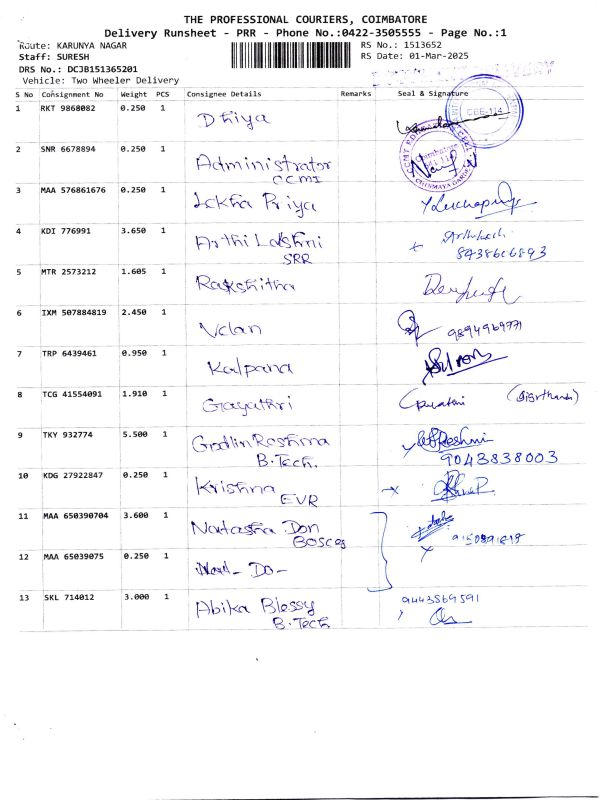 THE PROFESSIONAL COURIERS, COIMBATORE
Delivery Runsheet - PRR - Phone No.:0422-3505555 - Page No.:1
Route: KARUNYA NAGAR RS No.: 1513652
Staff: SURESH RS Date: 01-Mar-2025
DRS No.: DCJB151365201
Vehicle: Two Wheeler Delivery
S No Consignment No Weight PCS Consignee Details Remarks Seal & Signature
1 RKT 9868082 0.250 1 Dhiya CBE-114
2 SNR 6678894 0.250 1 Administrator
CCMI Coimbatore
CHINMAYA GARDEN
3 MAA 576861676 0.250 1 Lekha Priya
4 KDI 776991 3.650 1 Arthi Lakshmi
SRR 8438606893
5 MTR 2573212 1.605 1 Rakshitha
6 IXM 507884819 2.450 1 Velan 9894969771
7 TRP 6439461 0.950 1 Kalpana
8 TCG 41554091 1.910 1 Gayathri
9 TKY 932774 5.500 1 Godlin Reshma
B.Tech. 9043838003
10 KDG 27922847 0.250 1 Krishna
EVR
11 MAA 650390704 3.600 1 Natasha Don
BOSCO
12 MAA 65039075 0.250 1 - Do -
13 SKL 714012 3.000 1 Abika Blessy 9443569591
B.Tech